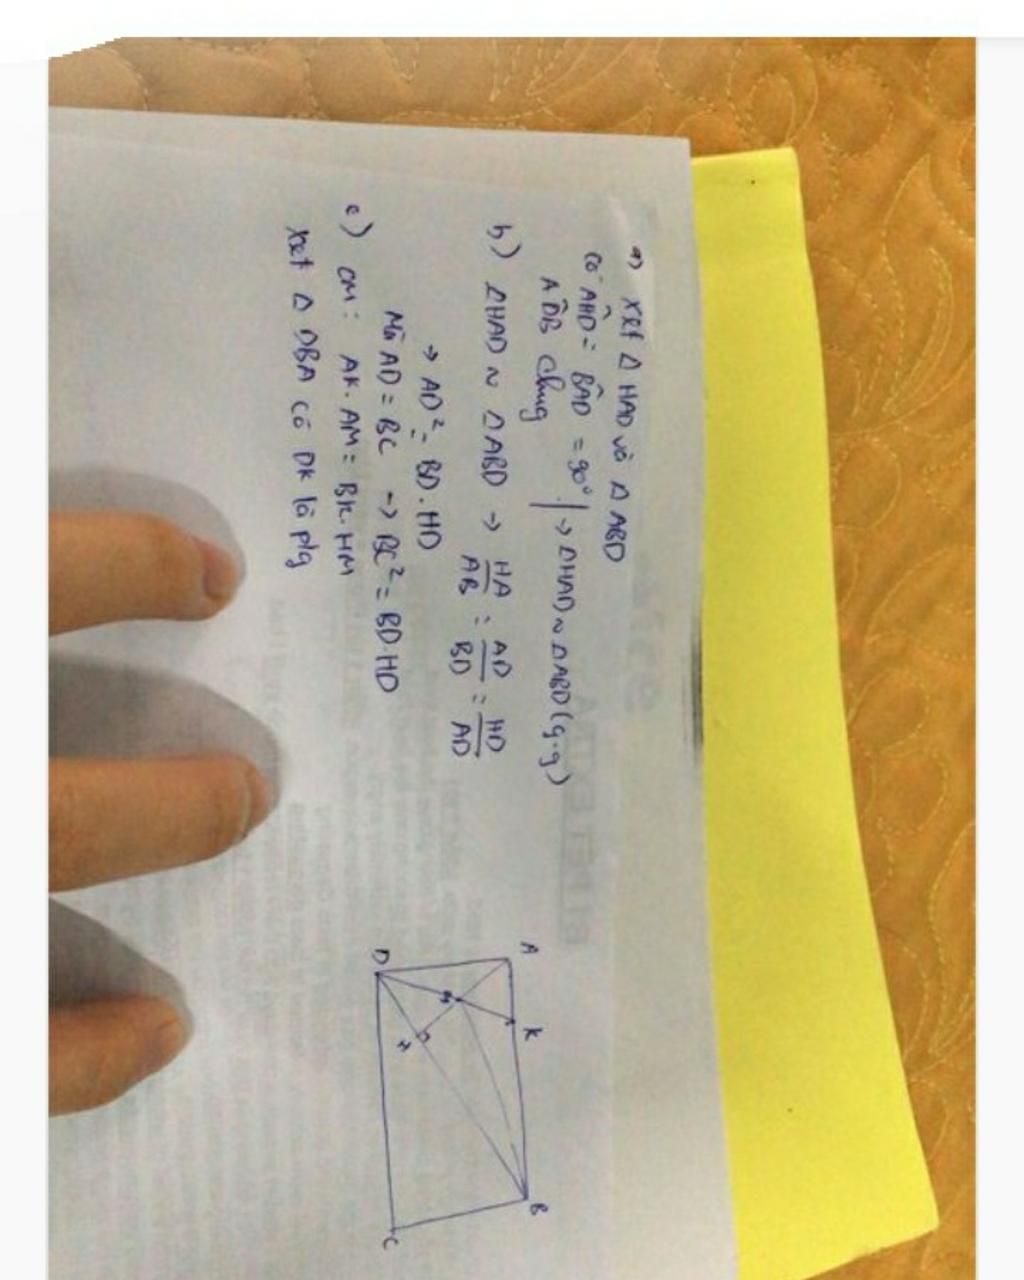 a) Xét Δ HAD và Δ ABD
Có AĤD = BÂD = 90°
AD̂B chung | → ΔHAD ~ ΔABD (g.g)
b) ΔHAD ~ ΔABD → HA/AB = AD/BD = HD/AD
→ AD² = BD.HD
Mà AD = BC → BC² = BD.HD
c) CM: AK.AM = BK.HM
Xét Δ DBA có DK là p/g
A K B
M
H
D C